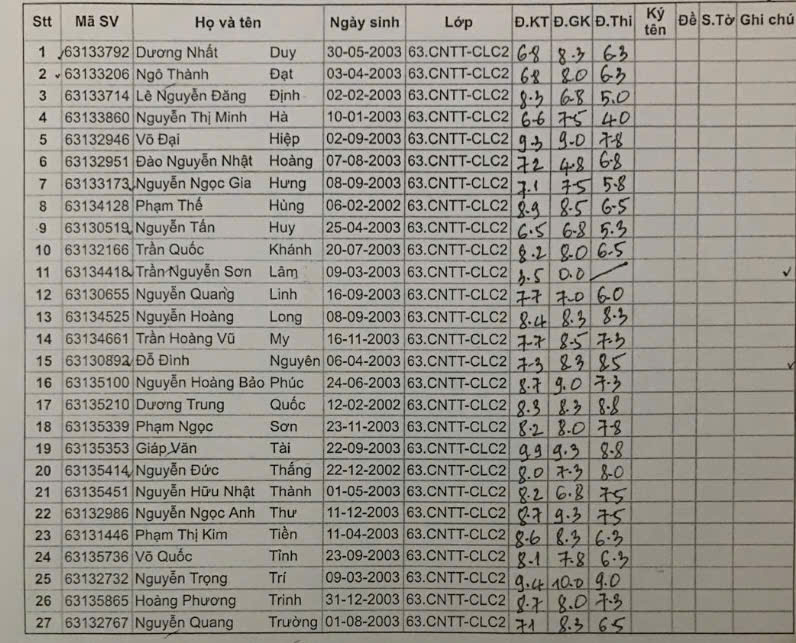 Stt Mã SV Họ và tên Ngày sinh Lớp Đ.KT Đ.GK Đ.Thi Ký tên Đề S.Tờ Ghi chú
1 63133792 Dương Nhất Duy 30-05-2003 63.CNTT-CLC2 6.8 8.3 6.3
2 63133206 Ngô Thành Đạt 03-04-2003 63.CNTT-CLC2 6.8 8.0 6.3
3 63133714 Lê Nguyễn Đăng Định 02-02-2003 63.CNTT-CLC2 8.3 6.8 5.0
4 63133860 Nguyễn Thị Minh Hà 10-01-2003 63.CNTT-CLC2 6.6 7.5 4.0
5 63132946 Võ Đại Hiệp 02-09-2003 63.CNTT-CLC2 9.3 9.0 7.8
6 63132951 Đào Nguyễn Nhật Hoàng 07-08-2003 63.CNTT-CLC2 7.2 4.8 6.8
7 63133173 Nguyễn Ngọc Gia Hưng 08-09-2003 63.CNTT-CLC2 7.1 7.5 5.8
8 63134128 Phạm Thế Hùng 06-02-2002 63.CNTT-CLC2 8.9 8.5 6.5
9 63130519 Nguyễn Tấn Huy 25-04-2003 63.CNTT-CLC2 6.5 6.8 5.3
10 63132166 Trần Quốc Khánh 20-07-2003 63.CNTT-CLC2 8.2 8.0 6.5
11 63134418 Trần Nguyễn Sơn Lâm 09-03-2003 63.CNTT-CLC2 3.5 0.0
12 63130655 Nguyễn Quang Linh 16-09-2003 63.CNTT-CLC2 7.7 7.0 6.0
13 63134525 Nguyễn Hoàng Long 08-09-2003 63.CNTT-CLC2 8.4 8.3 8.3
14 63134661 Trần Hoàng Vũ My 16-11-2003 63.CNTT-CLC2 7.7 8.5 7.3
15 63130892 Đỗ Đình Nguyên 06-04-2003 63.CNTT-CLC2 7.3 8.3 8.5
16 63135100 Nguyễn Hoàng Bảo Phúc 24-06-2003 63.CNTT-CLC2 8.7 9.0 7.3
17 63135210 Dương Trung Quốc 12-02-2002 63.CNTT-CLC2 8.3 8.3 8.8
18 63135339 Phạm Ngọc Sơn 23-11-2003 63.CNTT-CLC2 8.2 8.0 7.8
19 63135353 Giáp Văn Tài 22-09-2003 63.CNTT-CLC2 9.9 9.3 8.8
20 63135414 Nguyễn Đức Thắng 22-12-2002 63.CNTT-CLC2 8.0 7.3 8.0
21 63135451 Nguyễn Hữu Nhật Thành 01-05-2003 63.CNTT-CLC2 8.2 6.8 7.5
22 63132986 Nguyễn Ngọc Anh Thư 11-12-2003 63.CNTT-CLC2 8.7 9.3 7.5
23 63131446 Phạm Thị Kim Tiền 11-04-2003 63.CNTT-CLC2 8.6 8.3 6.3
24 63135736 Võ Quốc Tĩnh 23-09-2003 63.CNTT-CLC2 8.1 7.8 6.3
25 63132732 Nguyễn Trọng Trí 09-03-2003 63.CNTT-CLC2 9.4 10.0 9.0
26 63135865 Hoàng Phương Trinh 31-12-2003 63.CNTT-CLC2 8.7 8.0 7.3
27 63132767 Nguyễn Quang Trường 01-08-2003 63.CNTT-CLC2 7.1 8.3 6.5